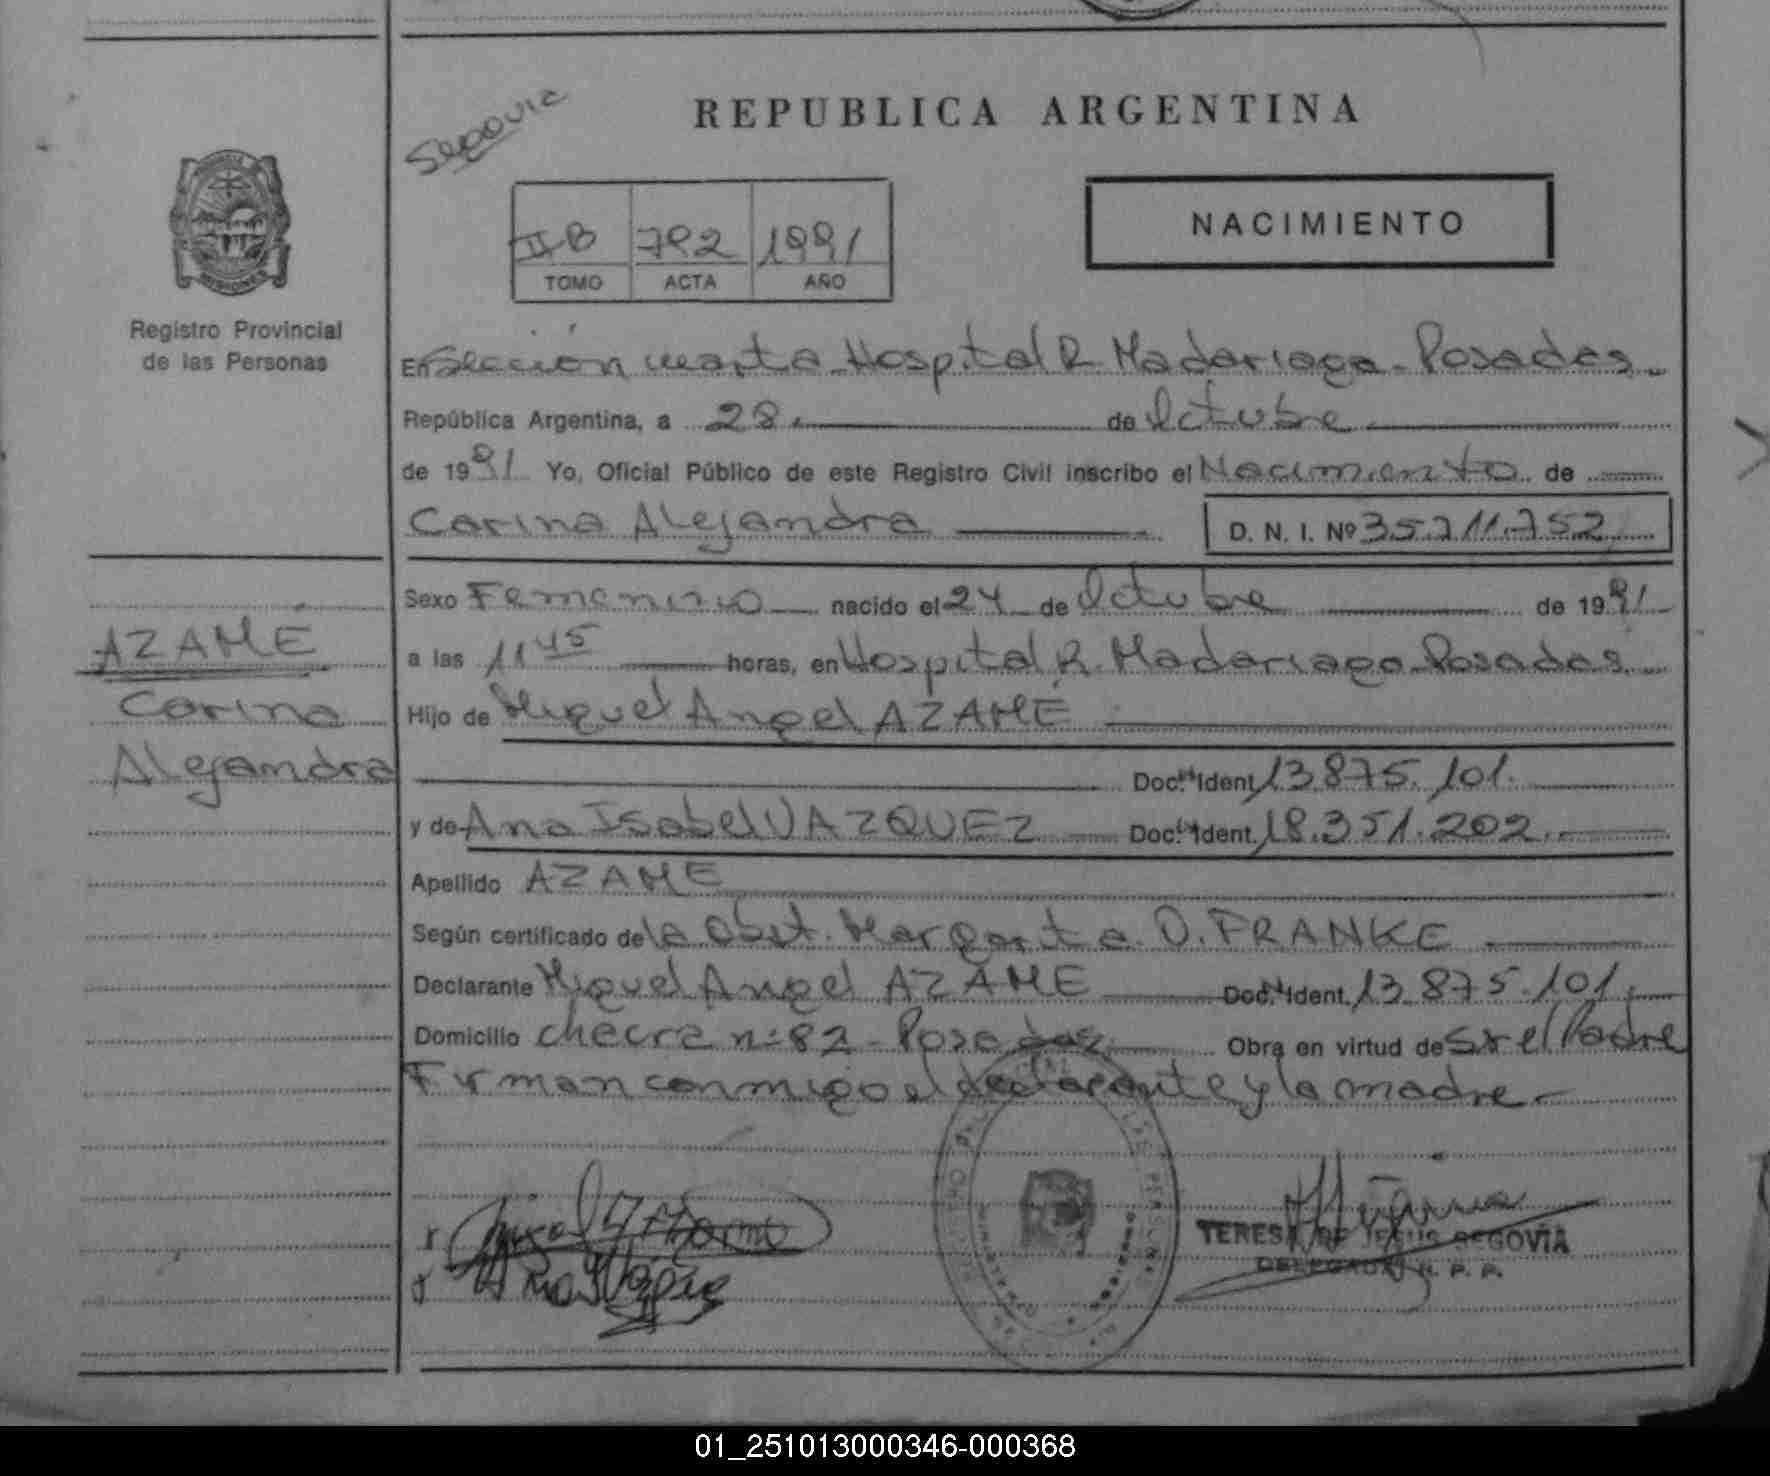 Segovia
REPUBLICA ARGENTINA
NACIMIENTO
II B 792 1991
TOMO ACTA AÑO
MISIONES
Registro Provincial
de las Personas
En Sección cuarta Hospital R Madariaga - Posadas.
República Argentina, a 28. de Octubre
de 1991 Yo, Oficial Público de este Registro Civil inscribo el Nacimiento de
Carina Alejandra
D. N. I. Nº 35.711.752
AZAMÉ
Carina
Alejandra
Sexo Femenino nacido el 24 de Octubre de 1991
a las 11 45 horas, en Hospital R. Madariaga Posadas.
Hijo de Miguel Angel AZAMÉ
Doc. Ident. 13.875.101.
y de Ana Isabel VAZQUEZ Doc. Ident. 18.351.202.
Apellido AZAME
Según certificado de la Obst. Margarita O. FRANKE
Declarante Miguel Angel AZAME Doc. Ident. 13.875.101.
Domicilio checra nº 82 - Posadas Obra en virtud de Ser el Padre
Firman conmigo el declarante y la madre.-
TERESA DE JESUS SEGOVIA
DELEGADA R. P. P.
01_251013000346-000368